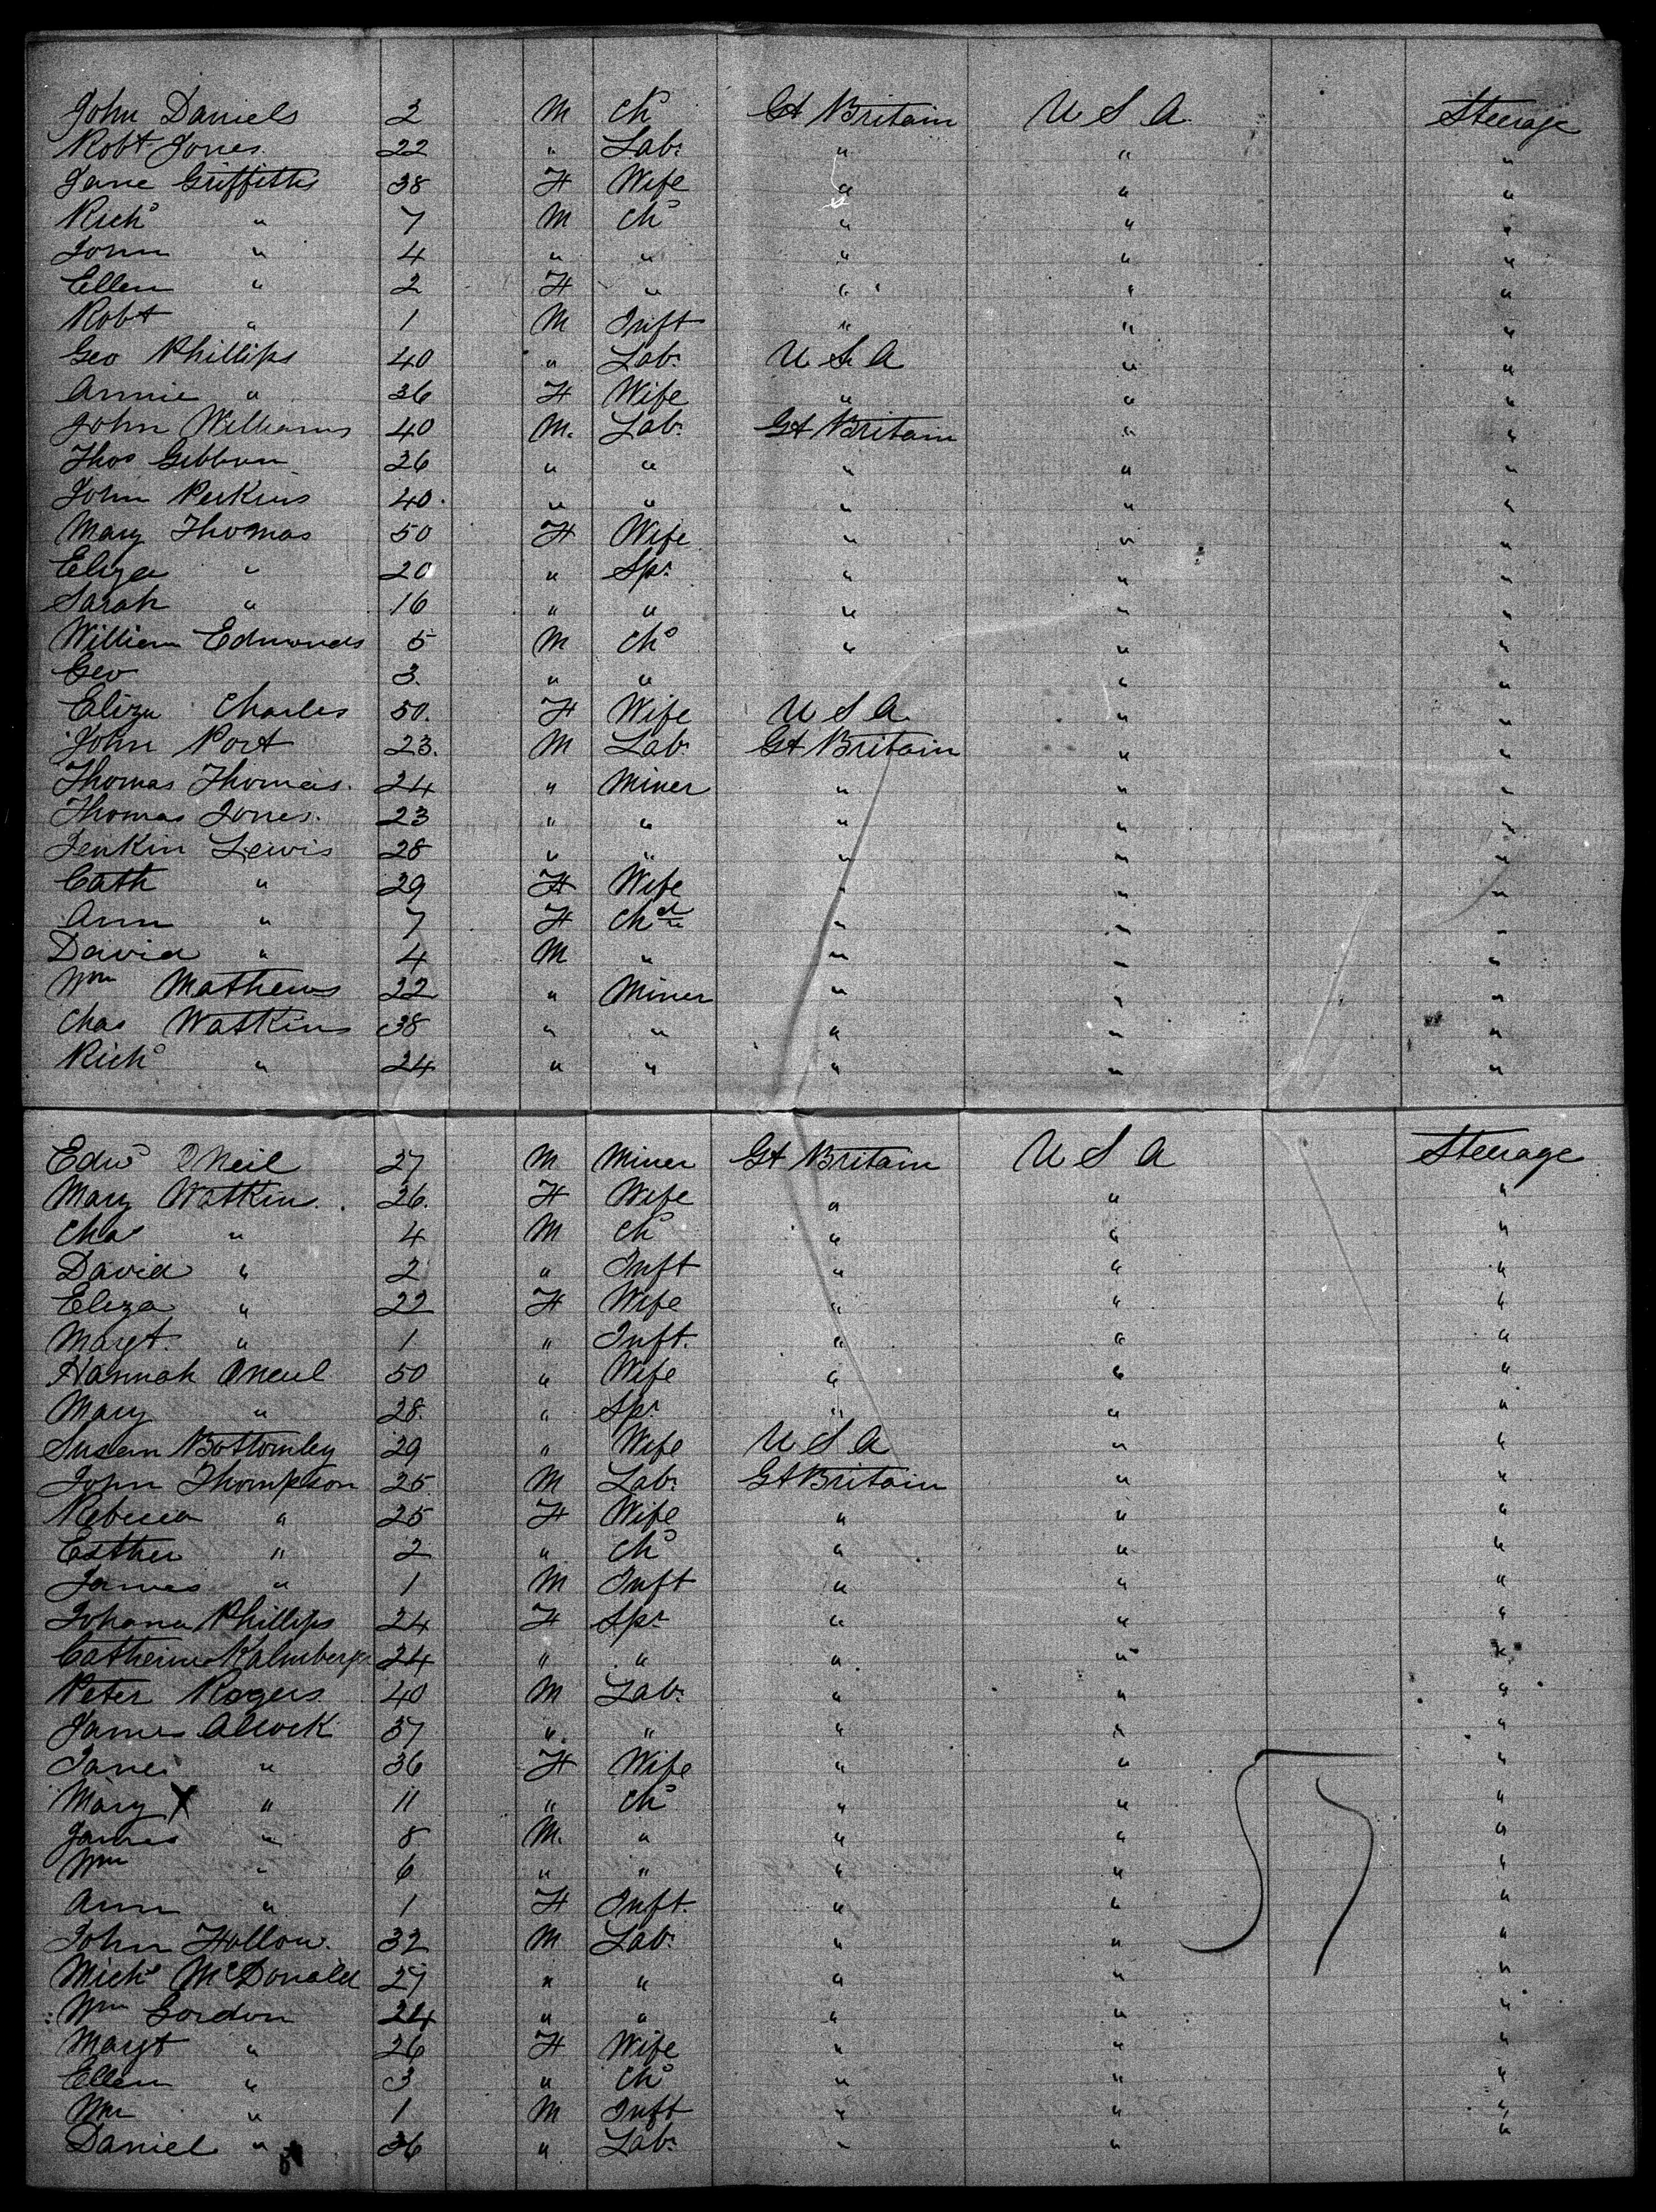 John Daniels 2 M Chd Gt Britain U S A Steerage
Robt Jones 22 " Labr " " "
Jane Griffiths 38 F Wife " " "
Richd " 7 M Chd " " "
John " 4 " " " " "
Ellen " 2 F " " " "
Robt " 1 M Inft " " "
Geo Phillips 40 " Labr U S A " "
Annie " 36 F Wife " " "
John Williams 40 M. Labr Gt Britain " "
Thos Gibbon 26 " " " " "
John Perkins 40 " " " " "
Mary Thomas 50 F Wife " " "
Eliza " 20 " Spr " " "
Sarah " 16 " " " " "
William Edmonds 5 M Chd " " "
Geo 3. " " " " "
Eliza Charles 50. F Wife U S A " "
John Port 23. M Labr Gt Britain " "
Thomas Thomas. 24 " Miner " " "
Thomas Jones. 23 " " " " "
Jenkin Lewis 28 " " " " "
Cath " 29 F Wife " " "
Ann " 7 F Chd " " "
David " 4 M " " " "
Wm Mathews 22 " Miner " " "
Chas Watkins 38 " " " " "
Richd " 24 " " " " "
Edwd O'Neil 27 M Miner Gt Britain U S A Steerage
Mary Watkins. 26. F Wife " " "
Chas " 4 M Chd " " "
David " 2 " Inft " " "
Eliza " 22 F Wife " " "
Margt. " 1 " Inft. " " "
Hannah Oneil 50 " Wife " " "
Mary " 28. " Spr " " "
Susan Bottomley 29 " Wife U S A " "
John Thompson 25 M Labr Gt Britain " "
Rebecca " 25 F Wife " " "
Esther " 2 " Chd " " "
James " 1 M Inft " " "
Johana Phillips 24 F Spr " " "
Catherine 24 " " " " "
Peter Rogers 40 M Labr " " "
James Allcock 37 " " " " "
Jane " 36 F Wife " " "
Mary X " 11 " Chd " " "
James " 8 M. " " " "
Wm " 6 " " " " "
Ann " 1 F Inft. " " "
John Hollow. 32 M Labr " " "
Michl McDonald 27 " " " " "
Wm Gordon 24 " " " " "
Margt " 26 F Wife " " "
Ellen " 3 " Chd " " "
Wm " 1 M Inft " " "
Daniel " 36 " Labr " " "
57